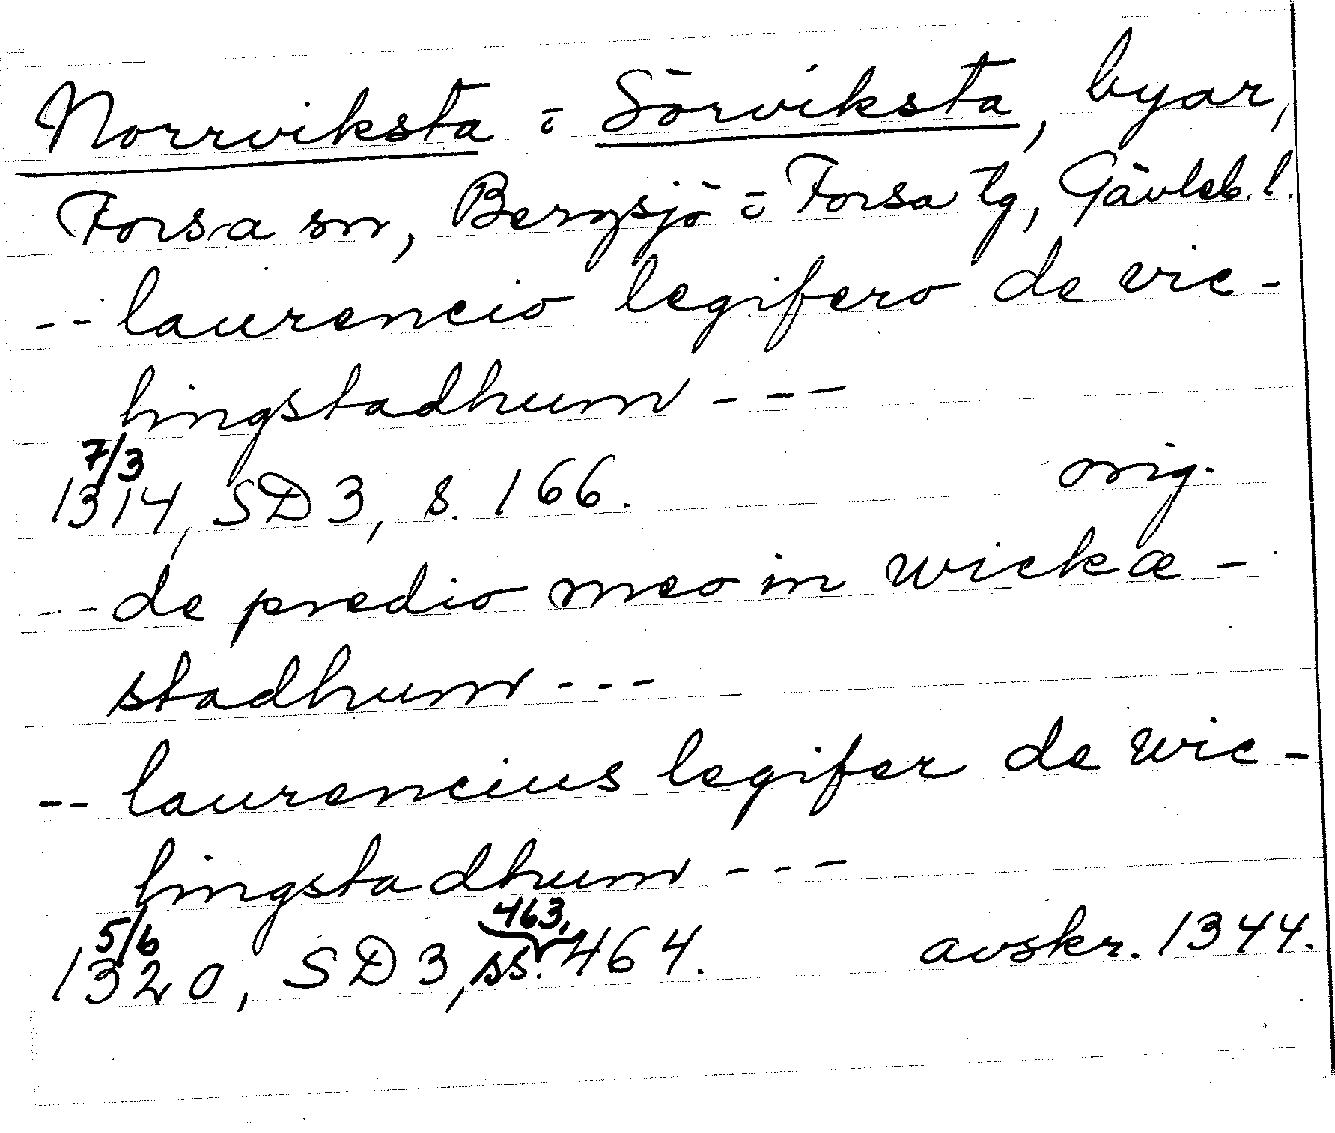 Norrviksta o̅ Sörviksta, byar,
Forsa sn, Bergsjö o̅ Forsa tg, Gävleb. l.
-- laurencio legifero de vic-
hingstadhum ---
7/3
1314, SD 3, s. 166. orig.
--- de predio meo in wickæ-
stadhum ---
-- laurencius legifer de wic-
hingstadhum ---
5/6 463,
1320, SD 3, ss. 464. avskr. 1344.